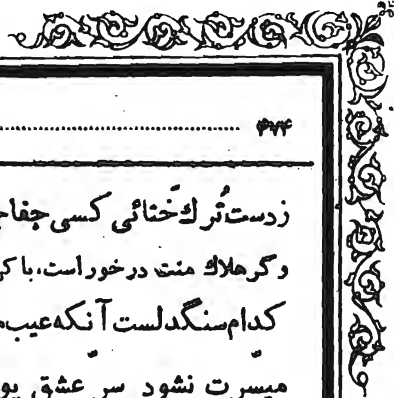 ۴۷۴
زدست تُرك خَتائی كسی جفا
و گر هلاك منت در خور است، باك
كدام سنگدلست آنكه عیب
میسرت نشود سر عشق